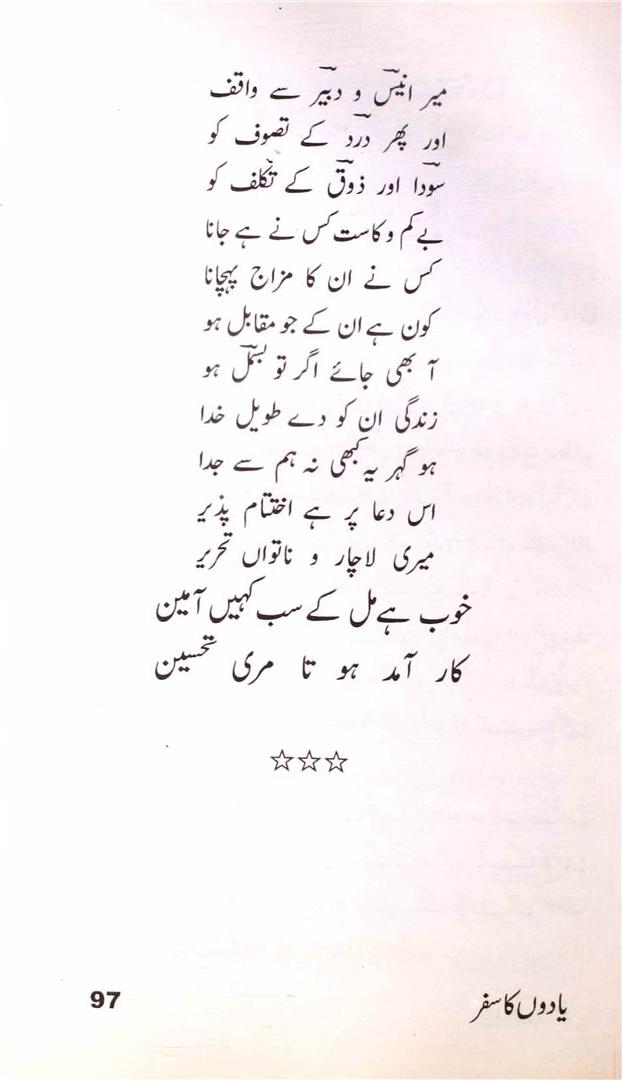 میر انیسؔ و دبیرؔ سے واقف
اور پھر دردؔ کے تصوف کو
سوداؔ اور ذوقؔ کے تکلف کو
بے کم و کاست کس نے ہے جانا
کس نے ان کا مزاج پہچانا
کون ہے ان کے جو مقابل ہو
آ بھی جائے اگر تو بسملؔ ہو
زندگی ان کو دے طویل خدا
ہو گہر یہ کبھی نہ ہم سے جدا
اس دعا پر ہے اختتام پذیر
میری لاچار و ناتواں تحریر
خوب ہے مل کے سب کہیں آمین
کار آمد ہو تا مری تحسین
☆☆☆
یادوں کا سفر
97